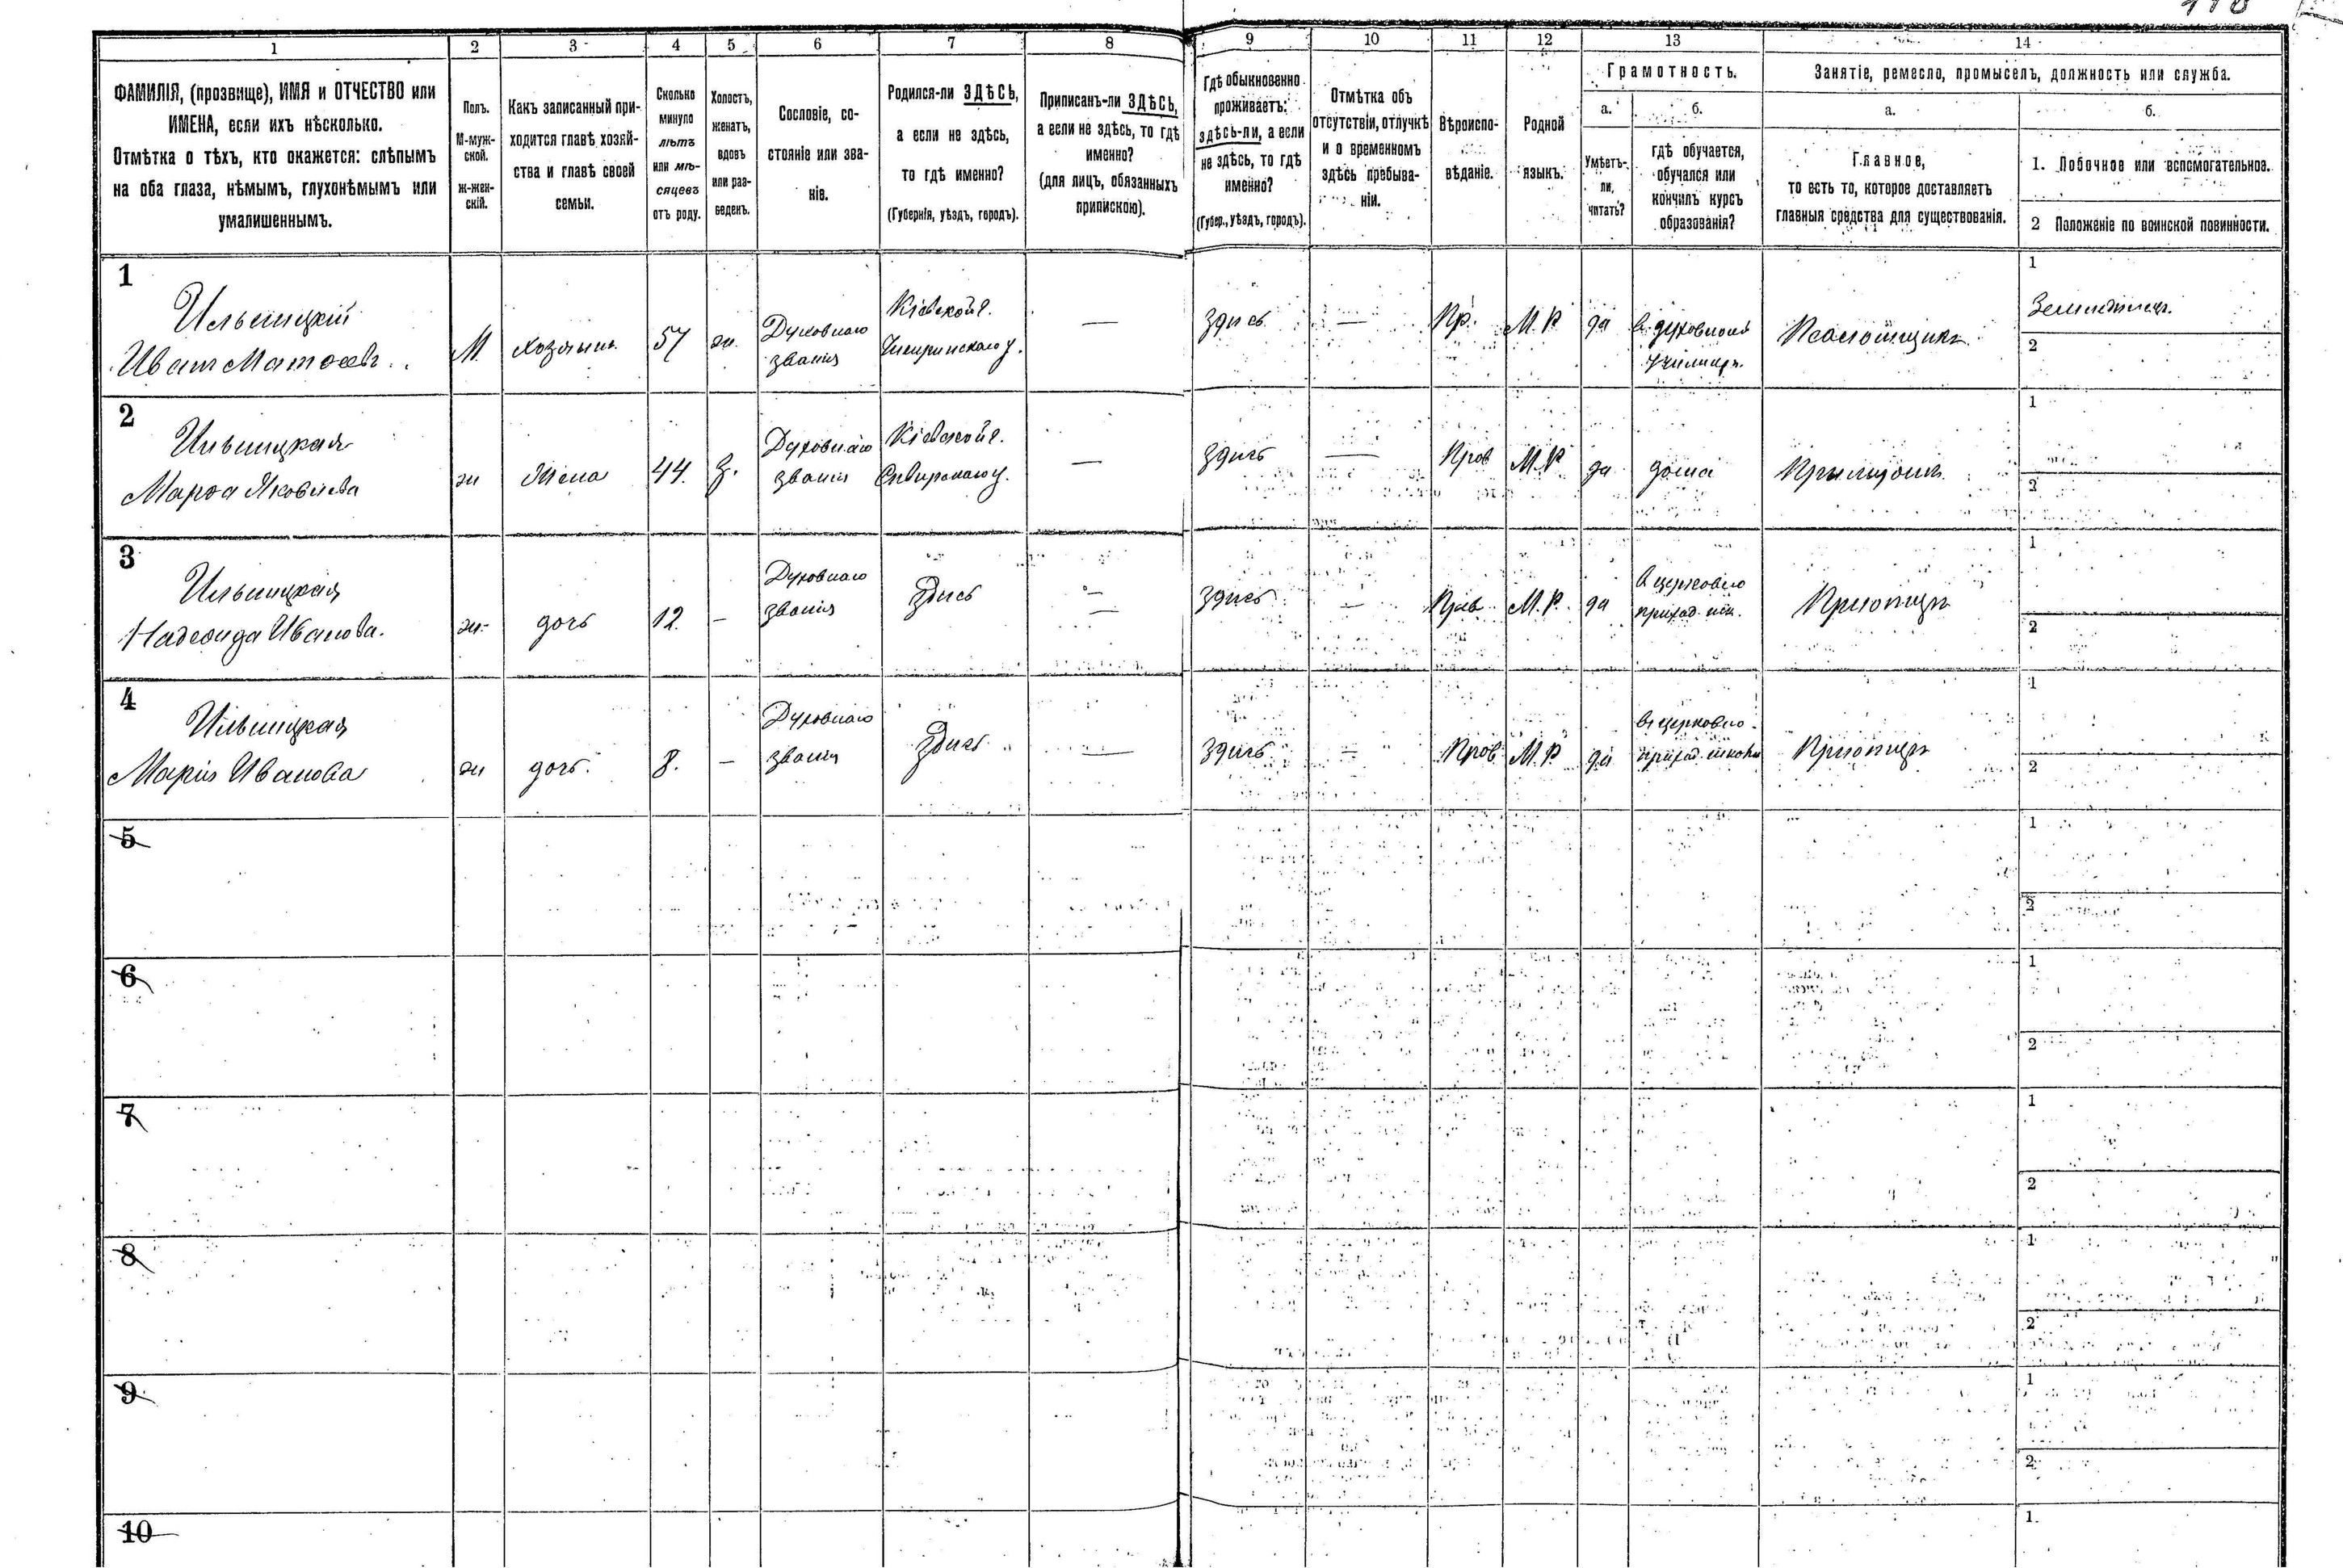 110
1 2 3 4 5 6 7 8 9 10 11 12 13 14
ФАМИЛІЯ, (прозвище), ИМЯ и ОТЧЕСТВО или
ИМЕНА, если ихъ нѣсколько.
Отмѣтка о тѣхъ, кто окажется: слѣпымъ
на оба глаза, нѣмымъ, глухонѣмымъ или
умалишеннымъ.
Полъ.
М-муж-
ской.
ж-жен-
скій.
Какъ записанный при-
ходится главѣ хозяй-
ства и главѣ своей
семьи.
Сколько
минуло
лѣтъ
или мѣ-
сяцевъ
отъ роду.
Холостъ,
женатъ,
вдовъ
или раз-
веденъ.
Сословіе, со-
стояніе или зва-
ніе.
Родился-ли ЗДѢСЬ,
а если не здѣсь,
то гдѣ именно?
(Губернія, уѣздъ, городъ).
Приписанъ-ли ЗДѢСЬ,
а если не здѣсь, то гдѣ
именно?
(для лицъ, обязанныхъ
припискою).
Гдѣ обыкновенно
проживаетъ:
здѣсь-ли, а если
не здѣсь, то гдѣ
именно?
(Губер., уѣздъ, городъ).
Отмѣтка объ
отсутствіи, отлучкѣ
и о временномъ
здѣсь пребыва-
ніи.
Вѣроиспо-
вѣданіе.
Родной
языкъ.
Грамотность.
а.
Умѣетъ-
ли,
читать?
б.
гдѣ обучается,
обучался или
кончилъ курсъ
образованія?
Занятіе, ремесло, промыселъ, должность или служба.
а.
Главное,
то есть то, которое доставляетъ
главныя средства для существованія.
б.
1. Побочное или вспомогательное.
2 Положеніе по воинской повинности.
1
Ильницкій
Иванъ Матѳеевъ
М.
хозяинъ
57
ж.
Духовнаго
званія
Кіевской г.
Чигиринскаго у.
—
здѣсь
—
Пр.
М.Р.
да
въ духовномъ
училищѣ
Псаломщикъ
1
2
2
Ильницкая
Марѳа Яковлева
ж
Жена
44.
з.
Духовнаго
званія
Кіевской г.
Сквирскаго у.
—
здѣсь
—
Прав
М.Р
да
дома
1
2
3
Ильницкая
Надежда Иванова.
ж.
дочь
12.
—
Духовнаго
званія
Здѣсь
—
здѣсь
—
Прав
М.Р.
да
в церковно
приход. шк.
При отцѣ
1
2
4
Ильницкая
Марія Иванова
ж
дочь.
8.
—
Духовнаго
званія
Здѣсь
—
здѣсь
—
Прав
М.Р
да
въ церковно
приход. школѣ
При отцѣ
1
2
5
1
2
6
1
2
7
1
2
8
1
2
9
1
2
10
1.